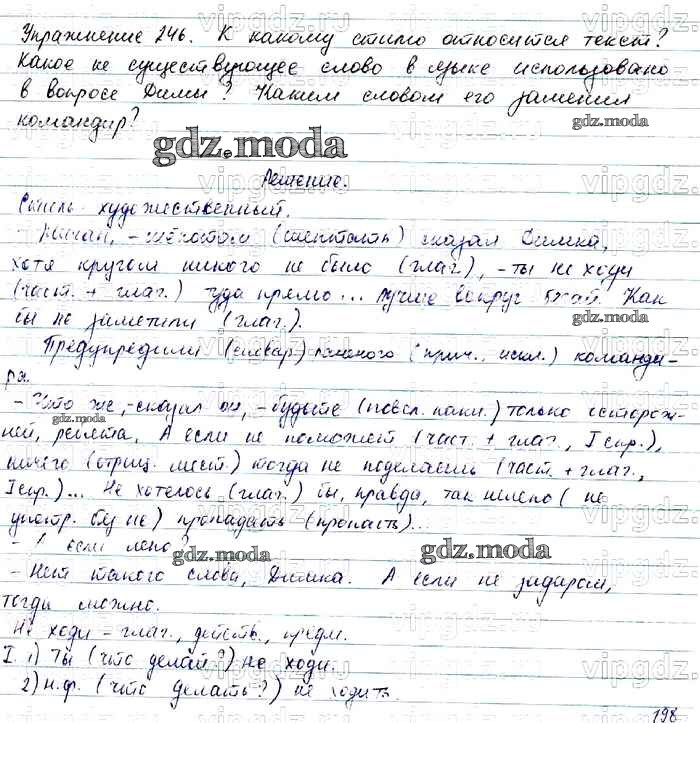 Упражнение 246. К какому стилю относится текст?
Какое не существующее слово в языке использовано
в вопросе Димы? Каким словом его заменил
командир?
gdz.moda
gdz.moda
Решение.
Стиль - художественный.
- шёпотом (шептать) сказал Димка,
хотя кругом никого не было (глаг), - ты не ходи
(част. + глаг.) туда прямо... лучше вокруг бегай. Как
бы не заметили (глаг.).
gdz.moda
Предупредили (словар) раненого (прич., искл.) команди-
ра.
- Что же, - сказал он, - будьте (повел. накл.) только осторож-
gdz.moda
ней, ребята. А если не поможет (част. + глаг., I спр.),
ничего (отриц. мест.) тогда не поделаешь (част. + глаг.,
I спр.)... Не хотелось (глаг.) бы, правда, так нелепо (не
употр. без не) пропадать (пропасть)...
- А если лепо?
gdz.moda
gdz.moda
- Нет такого слова, Димка. А если не задаром,
тогда можно.
Не ходи - глаг., действ. предм.
I. 1) Ты (что делай?) не ходи.
2) н.ф. (что делать?) не ходить.
198